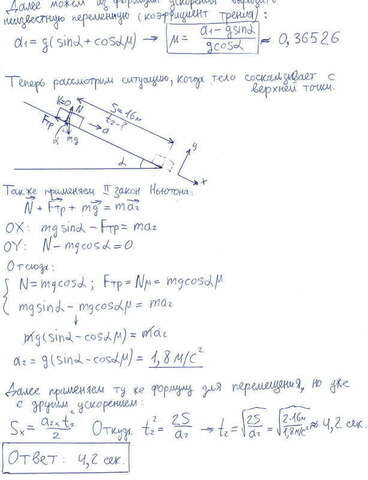 Далее можем из формулы ускорения выразить
неизвестную переменную (коэффициент трения):
a₁ = g(sinα + cosαμ) → μ = (a₁ - gsinα)/(gcosα) ≈ 0,36526
Теперь рассмотрим ситуацию, когда тело соскальзывает с
верхней точки.
N
S = 16м
t₂ - ?
a
Fтр
mg
α
α
y
x
Также применяем II закон Ньютона:
N + Fтр + mg = ma₂
OX: mgsinα - Fтр = ma₂
OY: N - mgcosα = 0
Отсюда:
N = mgcosα; Fтр = Nμ = mgcosαμ
mgsinα - mgcosαμ = ma₂
↓
mg(sinα - cosαμ) = ma₂
a₂ = g(sinα - cosαμ) = 1,8 м/с²
Далее применяем ту же формулу для перемещения, но уже
с другим ускорением:
Sₓ = a₂ₓt₂²/2 Откуда t₂² = 2S/a₂ → t₂ = √(2S/a₂) = √(2·16м/1,8м/с²) ≈ 4,2 сек.
Ответ: 4,2 сек.